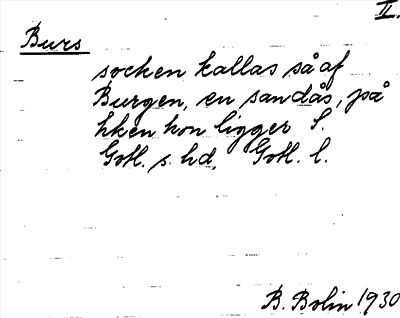 II.
Burs
socken kallas så af
Burgen, en sandås, på
hken hon ligger S.
Gotl. s. hd, Gotl. l.
B. Bolin 1930